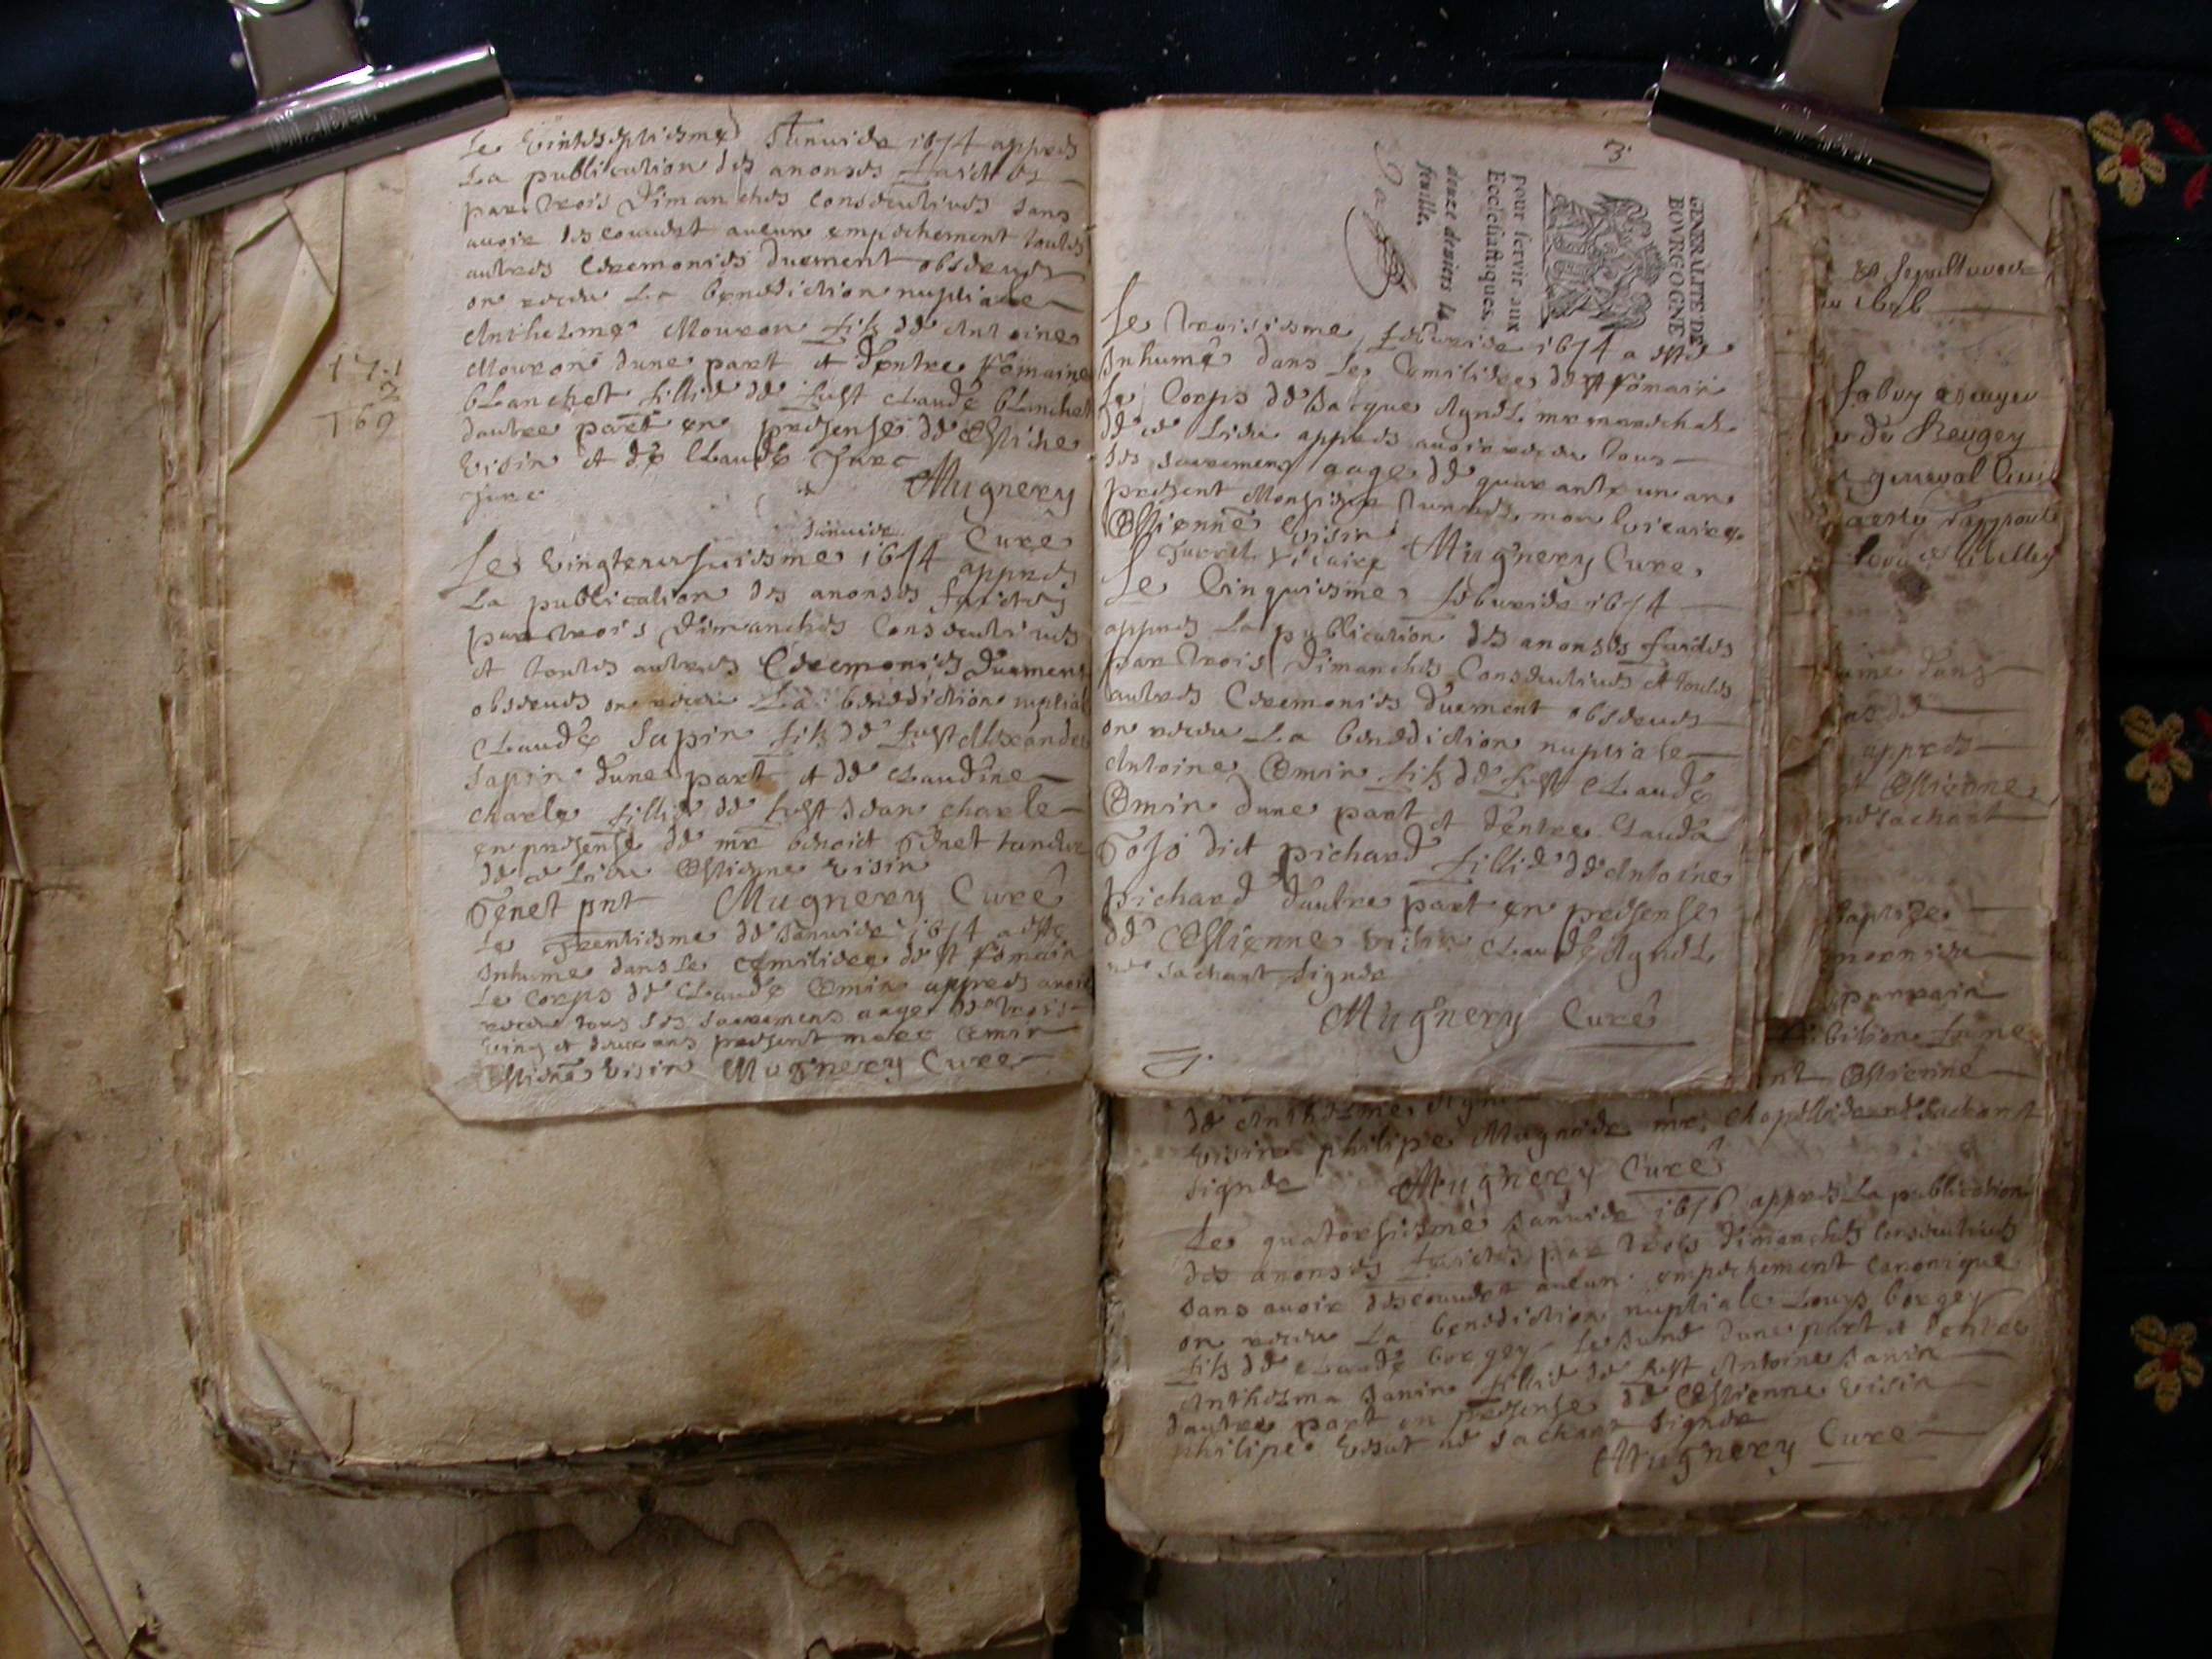 Le vintseptiesme Janvier 1674 appres
La publication des anonses faictes
par trois dimanches consecutives sans
avoir descouvert aucun empechement toutes
autres ceremonies duement observes
on receu La benediction nuptiale
Anthelme Mouron fils de Antoine
Mouron dune part et dentre Romaine
blanchet fillie de fust Claude blanchet
dautre part en presense de Estiene
Visin et de Claude Jure
Jure Mugnery
Curé
Janvier
Le vingteneufviesme 1674 appres
La publication des anonses faictes
par trois dimanches consecutives
et toutes autres Ceremonies duement
observes on receu La benediction nuptial
Claude Sapin fils de fust Alexandre
Sapin dune part et de Claudine
charle fillie de fust Jean charle
en presense de mre benoict Genet
de ce Lieu Estienne visin
Genet pnt Mugnery Curé
Le Trentiesme de Janvier 1674 a esté
Inhume dans Le Cemiliere de st Romain
Le corps de Claude Emin appres avoir
receu tous Les sacremens aage de trois
ving et deux ans present marc Emin
Estiene visin Mugnery Cure
171
2
169
3.
GENERALITE DE
BOVRGOGNE
pour servir aux
Ecclesiastiques.
douze deniers la
feuille.
Le troisiesme febvrier 1674 a esté
Inhumé dans Le Cemiliere de st Romain
Le Corps de Jacque Agnel mre mareschal
de ce Lieu appres avoir receu tous
Les sacremens aage de quarante un an
present Monsieur mon vicaire
Estienne visin
vicaire Mugnery Cure
Le Cinquiesme febvrier 1674
appres La publication des anonses faictes
par trois dimanches Consecutives et toutes
autres Ceremonies duement observes
on receu La benediction nuptiale
Antoine Emin fils de fust Claude
Emin dune part et dentre Clauda
dict pichard fillie de Antoine
pichard dautre part en presense
de Estienne visin Claude Agnel
ne sachant signer
Mugnery Curé
de Anthelme
visin philipe Mugnier mre chapellier ne sachant
signer Mugnery Curé
Le quatorsiesme Janvier 1676 appres La publication
des anonses faictes par trois dimanches consecutives
sans avoir descouvert aucun empechement canonique
on receu La benediction nuptiale Louys borgey
fils de Claude borgey Le Jeune dune part et dentre
Anthelma Janin fillie de fust Antoine Janin
dautre part en presense de Estienne visin
philipe ne sachant signer
Mugnery Cure
1676
de Reugey
dans
appres
Estienne
ne sachant
baptize
parrain
Estienne